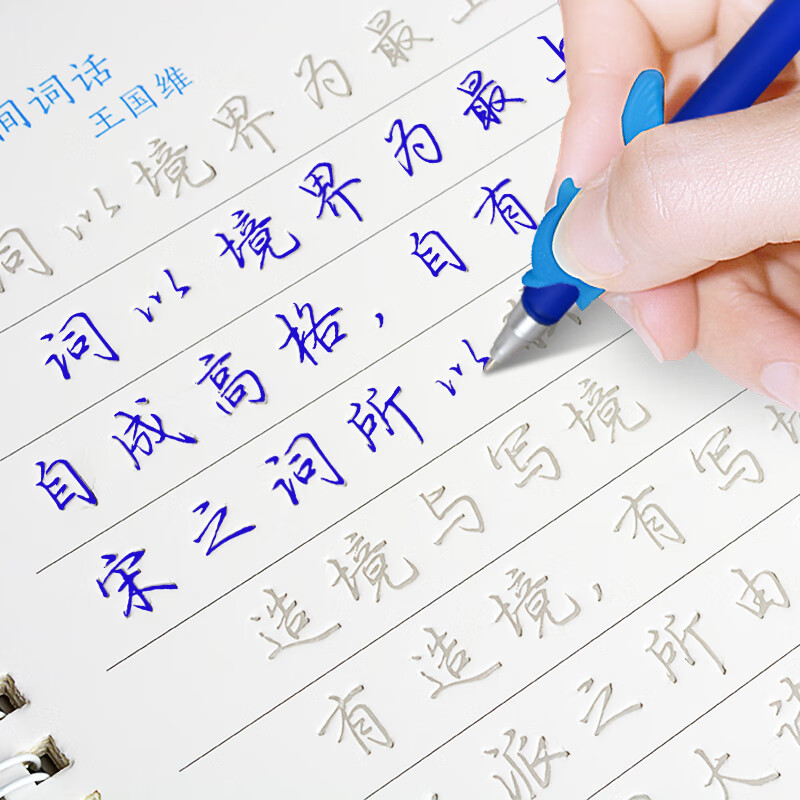 间词话
王国维
词以境界为最上
词以境界为最上
自成高格，自有
宋之词所以
造境与写境
有造境，有写境
派之所由
大诗